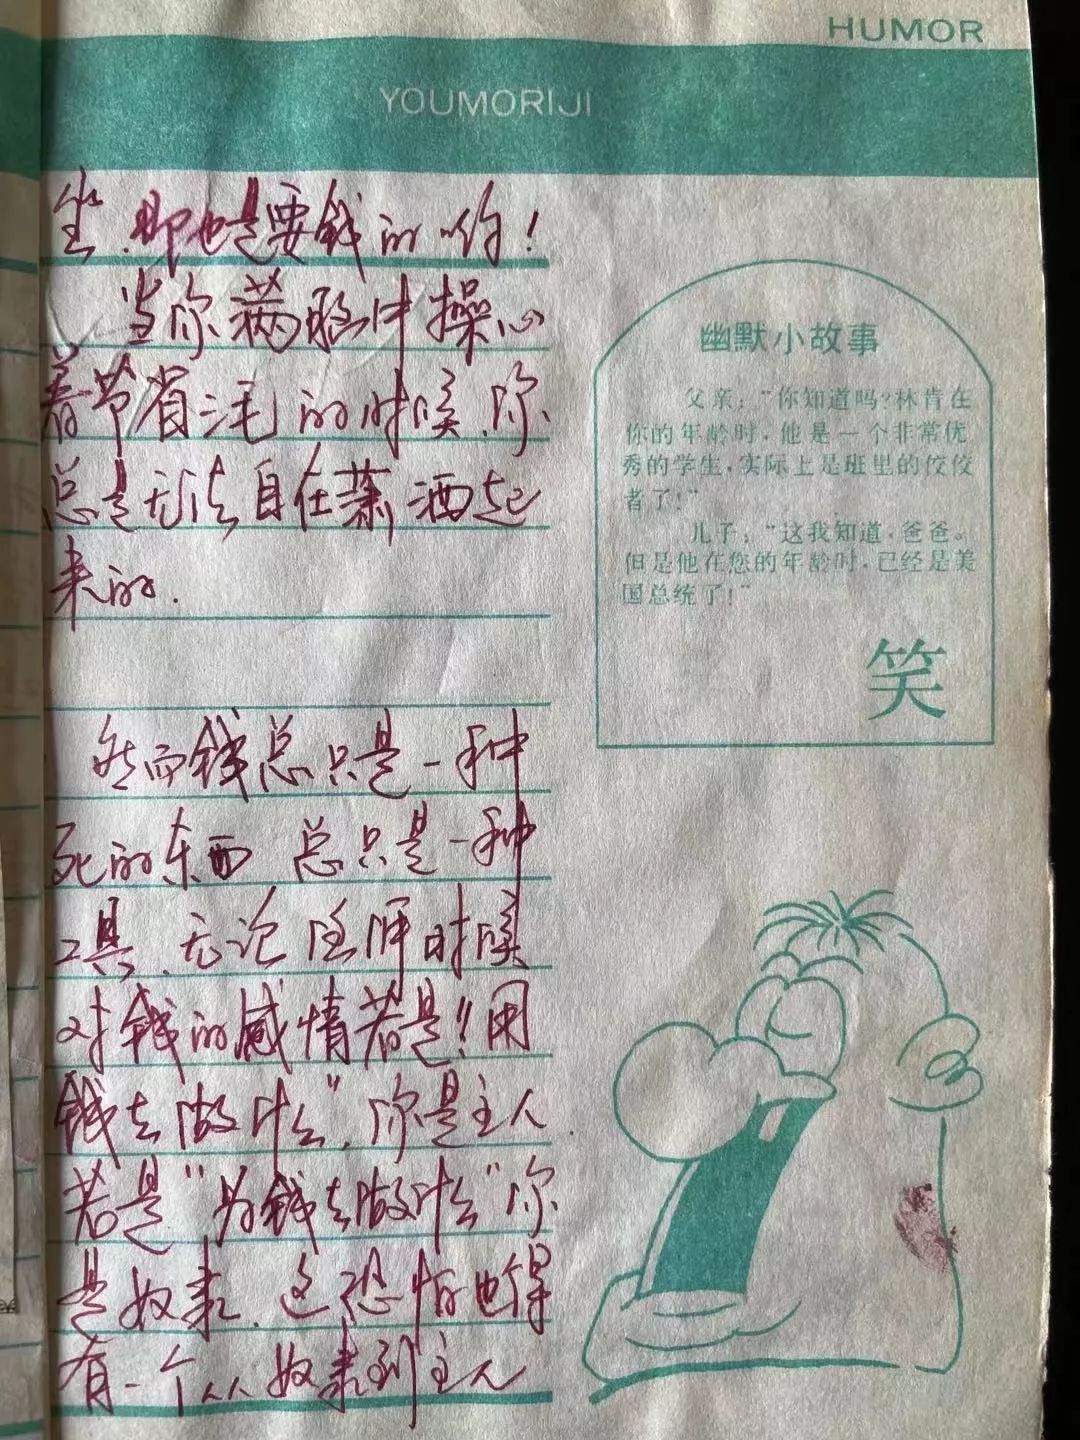 HUMOR
YOUMORIJI
坐,那也是要钱的哟!
当你满脑中操心
着节省三毛的时候,你
总是无法自在萧洒起
来的.
然而钱总只是一种
死的东西 总只是一种
工具,无论何时候
对钱的感情若是“用
钱去做什么”,你是主人.
若是“为钱去做什么”你
是奴隶,这恐怕也得
有一个从奴隶到主人
幽默小故事
父亲:“你知道吗?林肯在
你的年龄时,他是一个非常优
秀的学生,实际上是班里的佼佼
者了!”
儿子:“这我知道,爸爸。
但是他在您的年龄时,已经是美
国总统了!”
笑